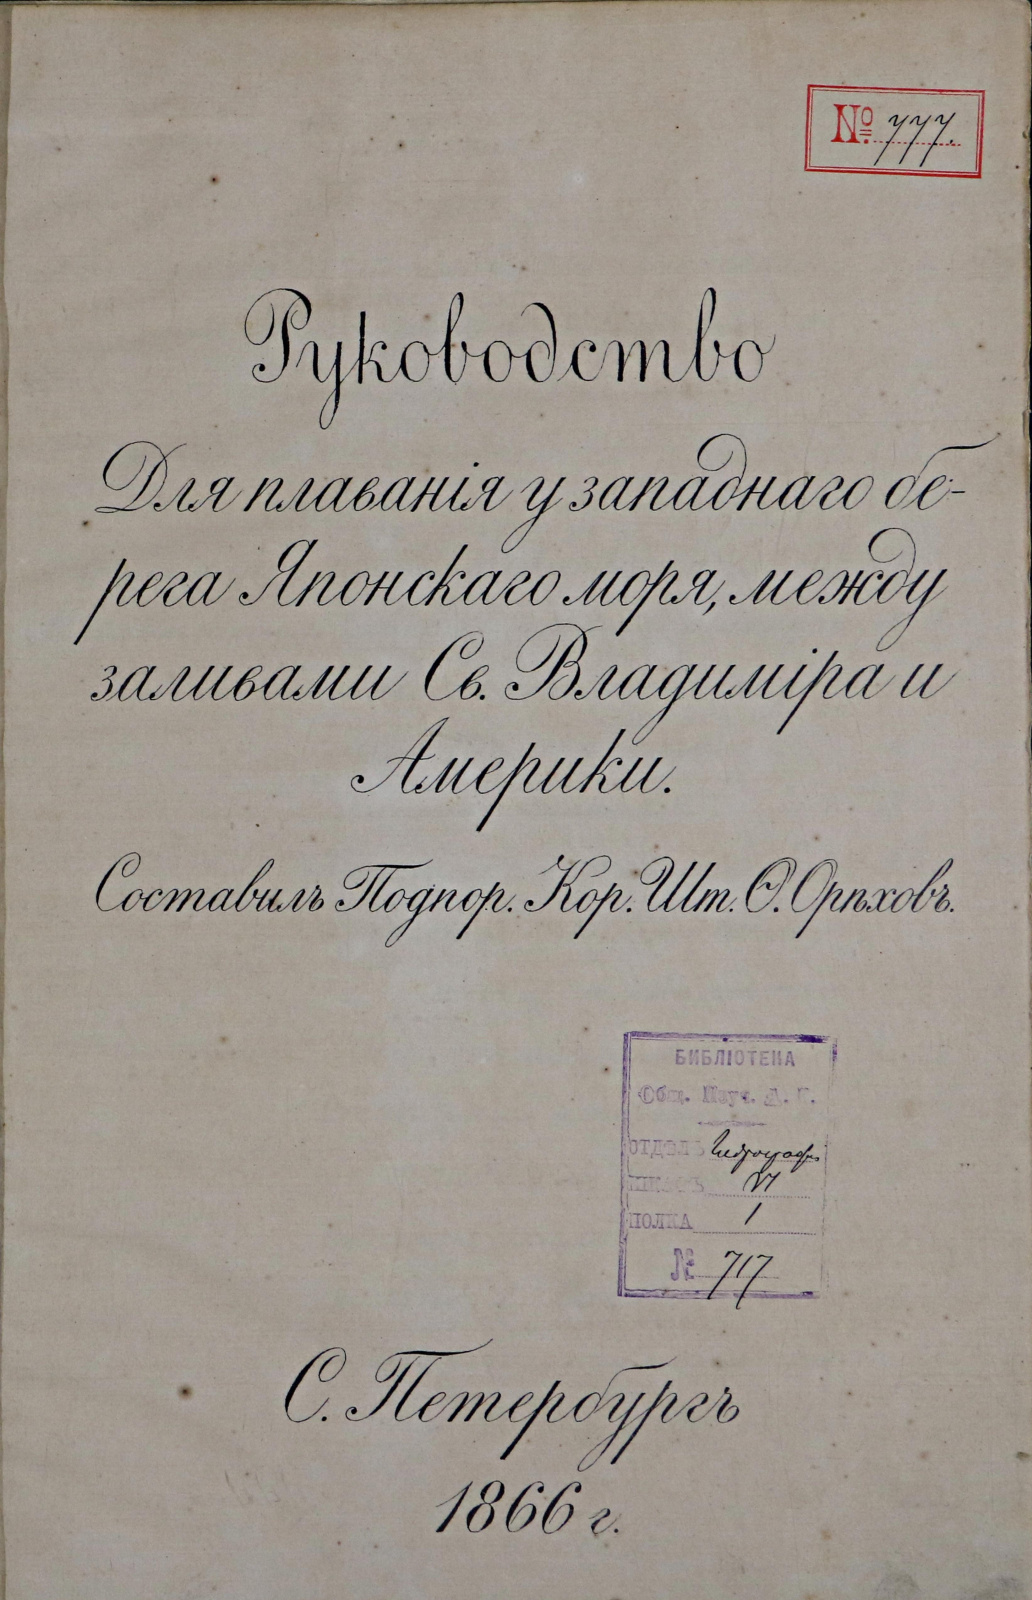 № 777.
Руководство
Для плаванія у западнаго бе-
рега Японскаго моря, между
заливами Св. Владиміра и
Америки.
Составилъ Подпор. Кор. Шт. Ѳ. Орѣховъ.
БИБЛІОТЕКА
Общ. Изуч. А. К.
ОТДѢЛЪ Гидрограф.
ШКАФЪ VI
ПОЛКА 1
№ 717
С. Петербургъ
1866 г.